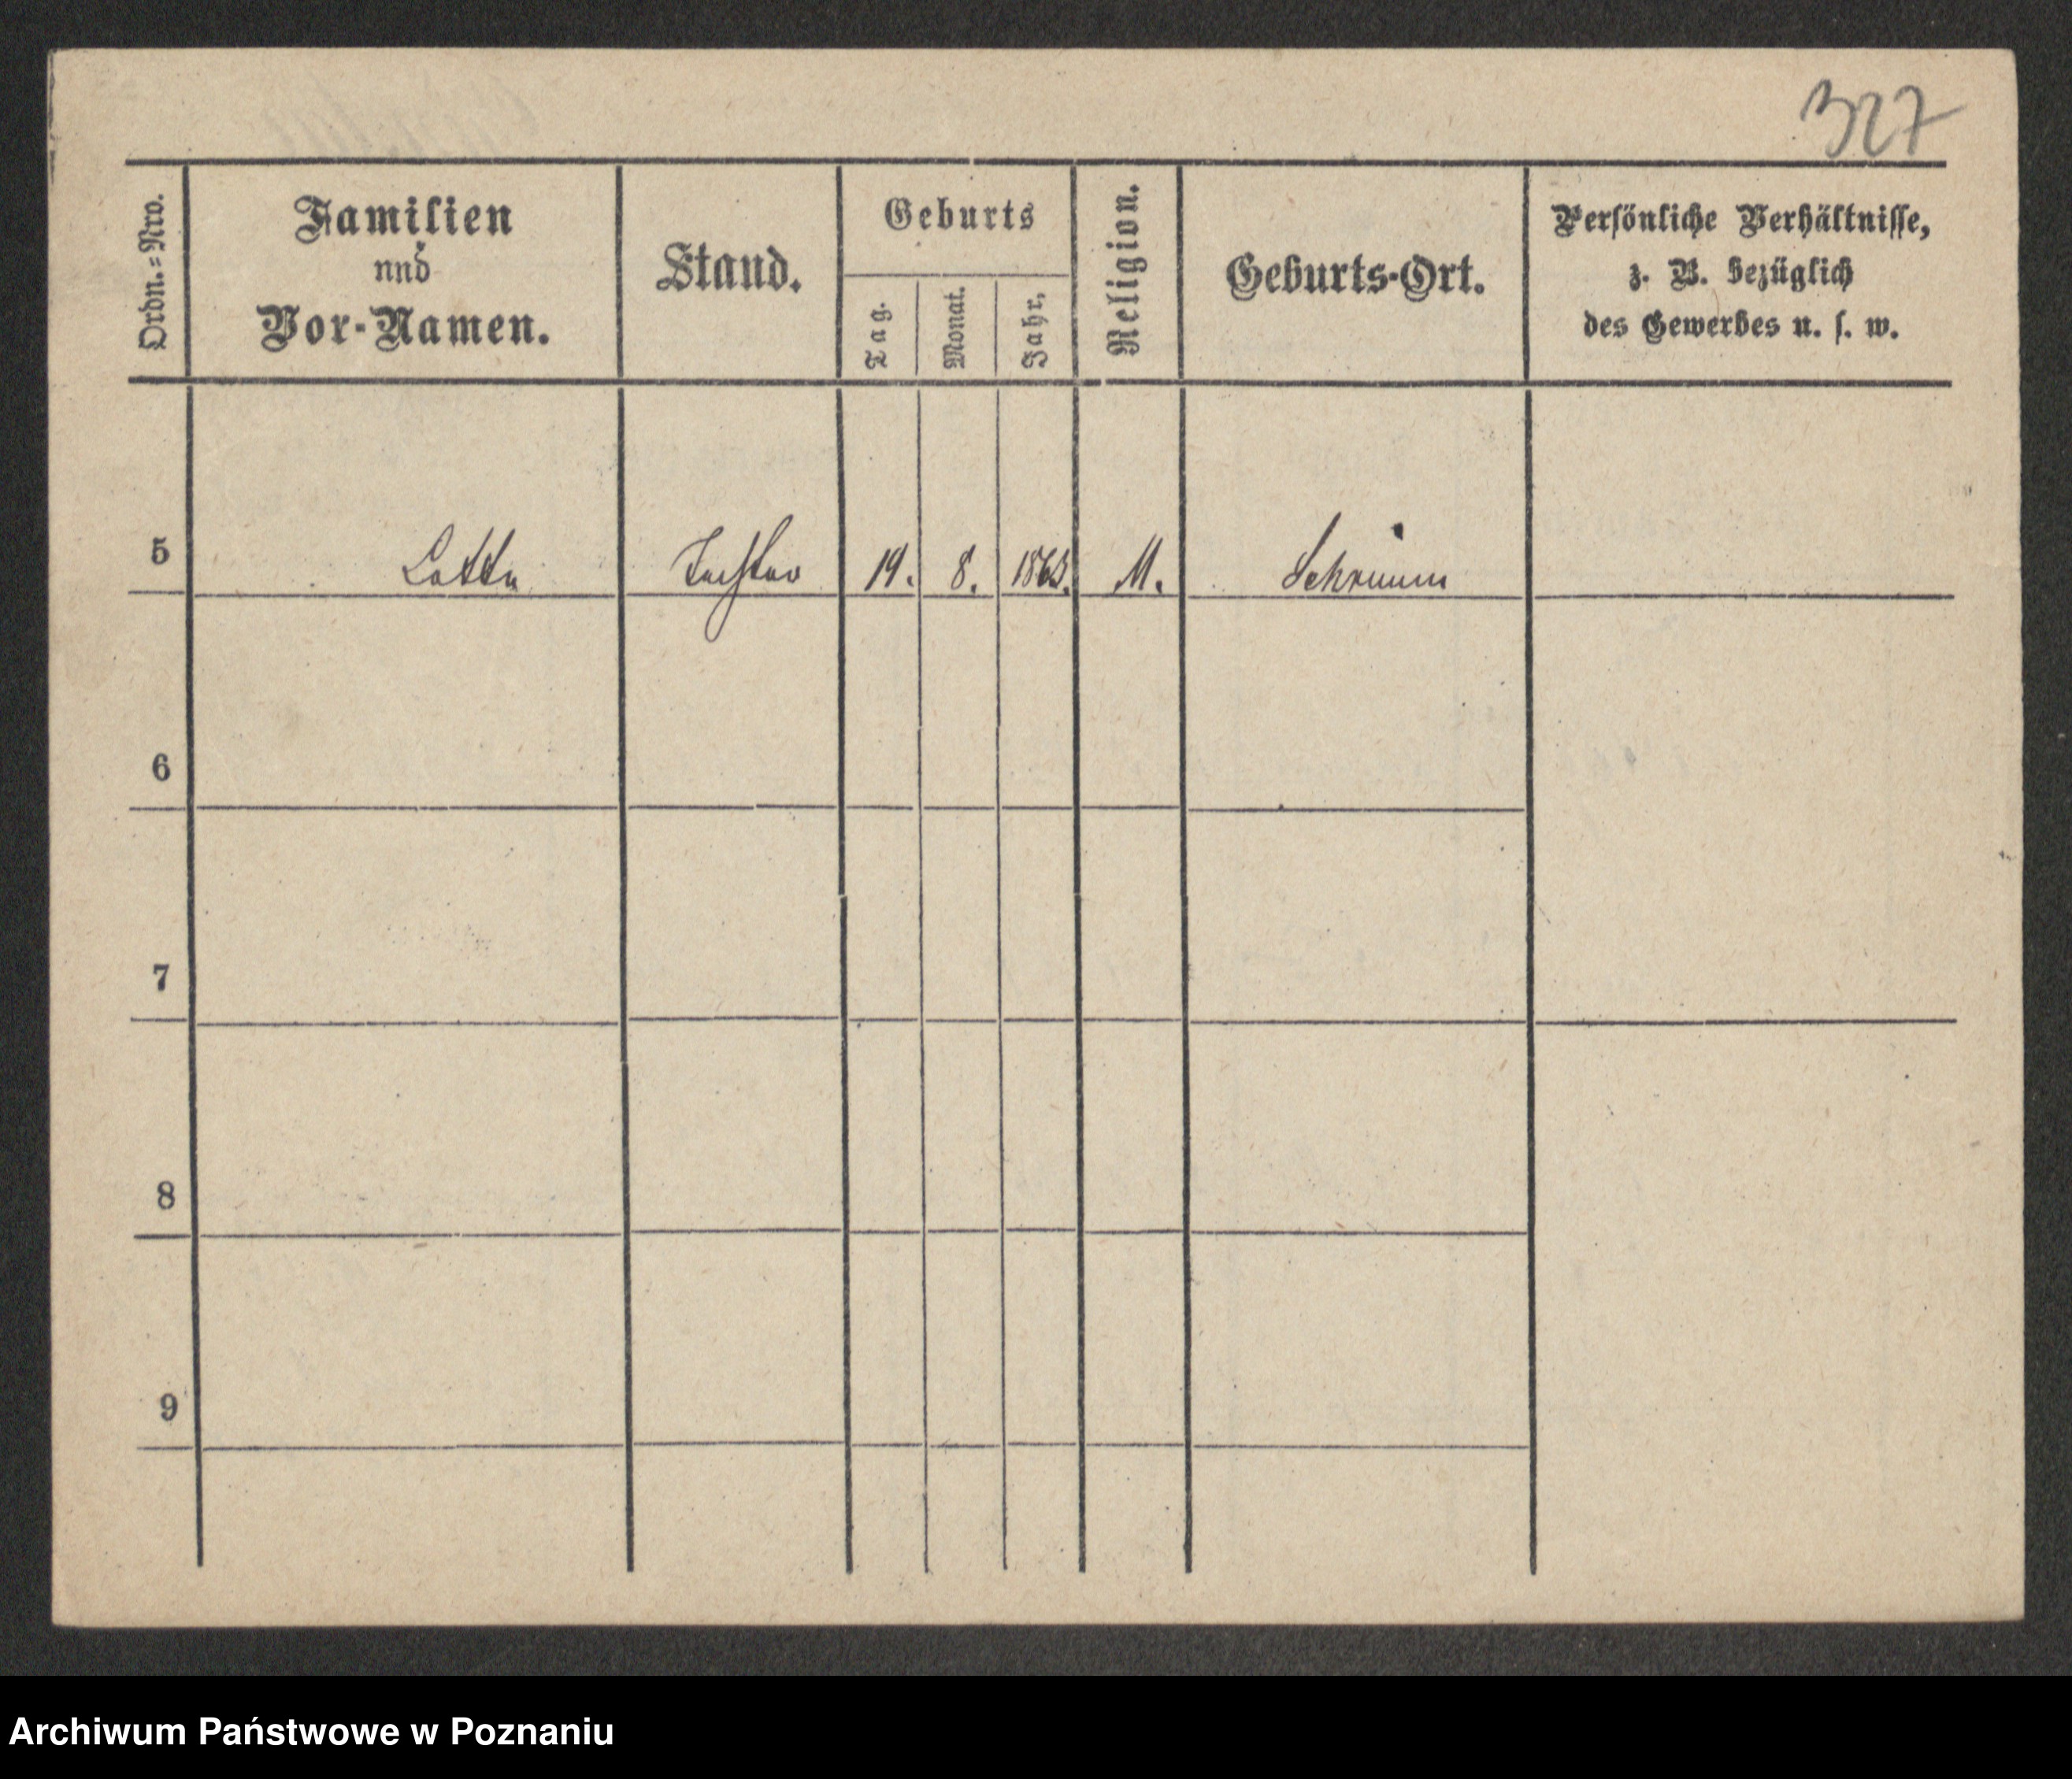 327
Ordn.=Nro.
Familien
und
Vor-Namen.
Stand.
Geburts
Tag.
Monat.
Jahr.
Religion.
Geburts-Ort.
Persönliche Verhältnisse,
z. B. bezüglich
des Gewerbes u. s. w.
5 Lotte Tochter 19. 8. 1863. M. Schrimm
6
7
8
9
Archiwum Państwowe w Poznaniu